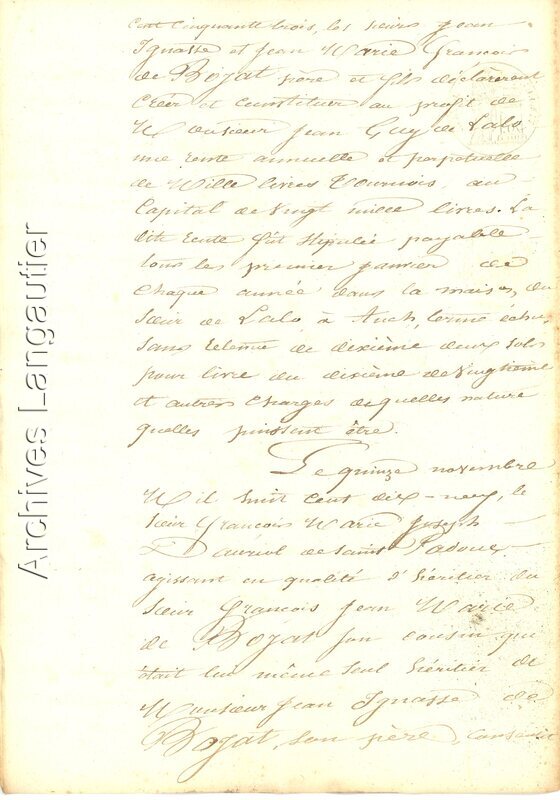 cent cinquante trois, les sieurs Jean
Ignasse et Jean Marie François
de Bojat père et fils déclarèrent
créer et constituer au profit de
Monsieur Jean Guy de Lalo
une rente annuelle et perpetuelle
de Mille livres Tournois, au
Capital de Vingt mille livres. La
dite rente fût stipulée payable
tous les premier janvier de
chaque année dans la maison du
sieur de Lalo, à Auch, terme échu,
sans retenue de dixième deux sols
pour livre du dixième de vingtieme
et autres charges de quelles nature
quelles puissent être.
Le quinze novembre
Mil huit cent dix-neuf, le
sieur François Marie Joseph
Dauriol de Saint Padoux
agissant en qualité d'héritier du
sieur François Jean Marie
de Bojat son cousin qui
était lui même seul héritier de
Monsieur Jean Ignasse de
Bojat, son père, consentit
Archives Langautier